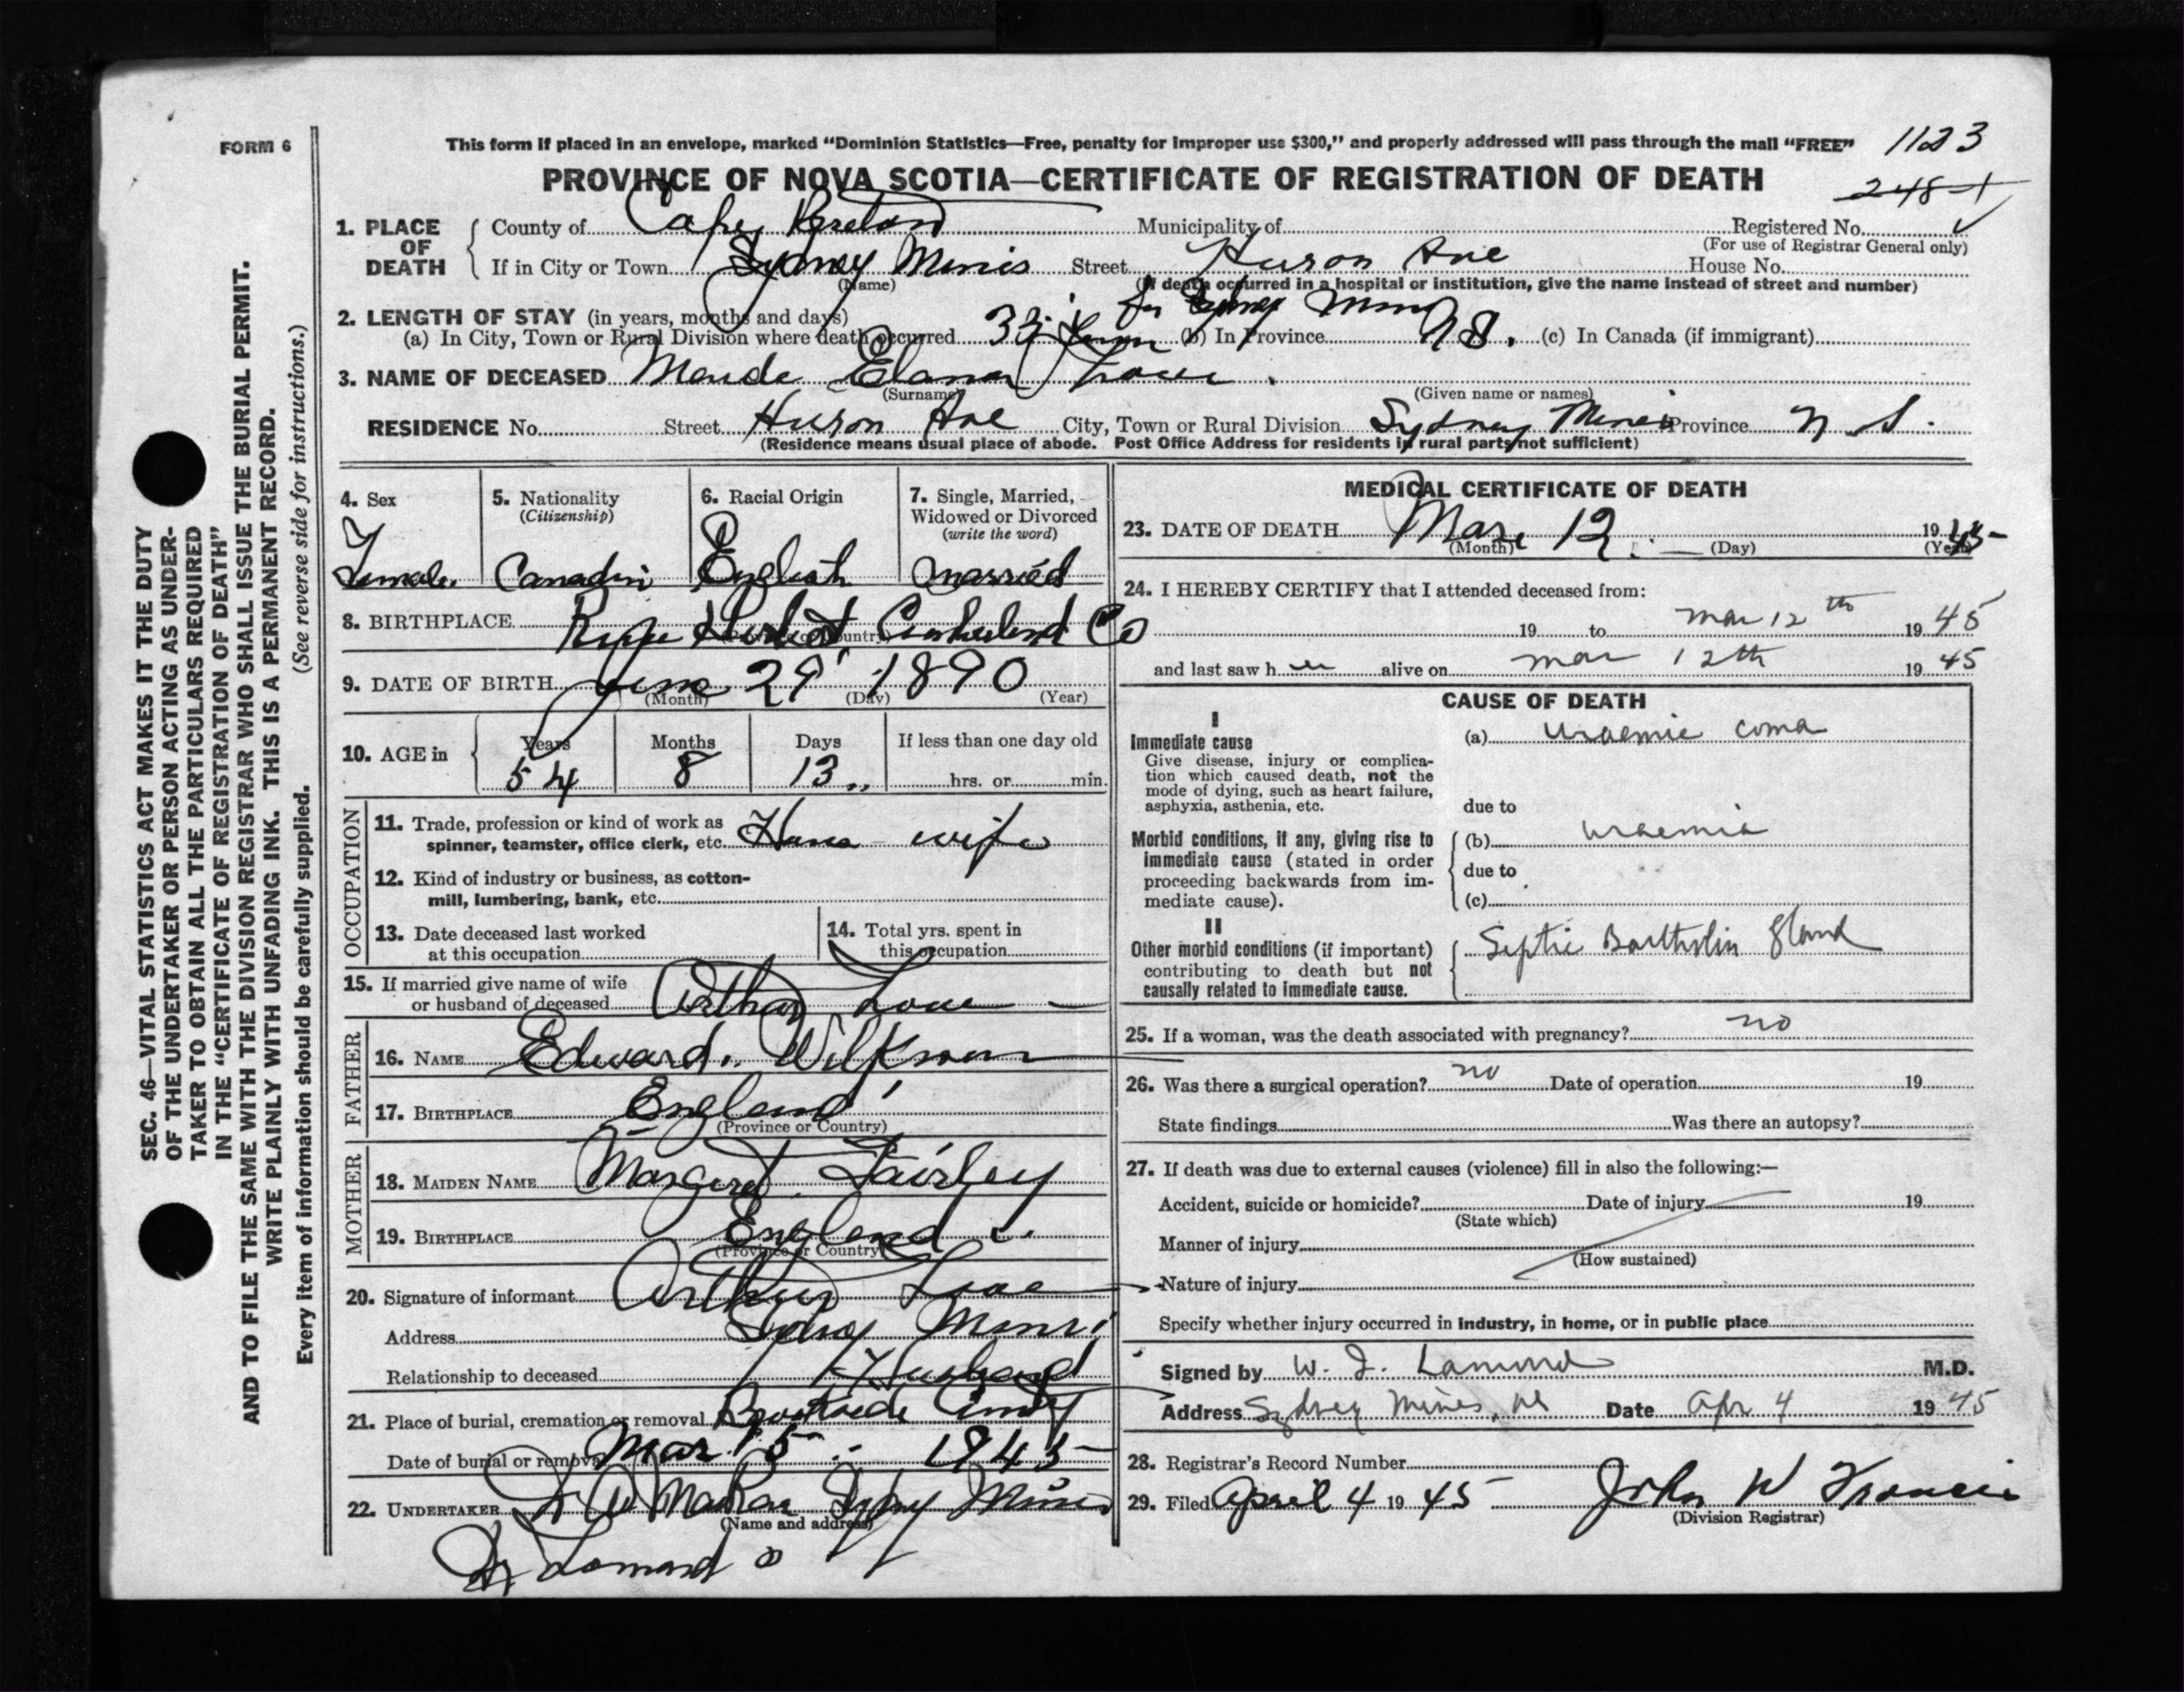 FORM 6
This form if placed in an envelope, marked "Dominion Statistics—Free, penalty for improper use $300," and properly addressed will pass through the mail "FREE"
1123
248-1
PROVINCE OF NOVA SCOTIA—CERTIFICATE OF REGISTRATION OF DEATH
1. PLACE OF DEATH
County of Cape Breton Municipality of Registered No.
(For use of Registrar General only)
If in City or Town Sydney Mines Street Huron Ave House No.
(Name) (If death occurred in a hospital or institution, give the name instead of street and number)
2. LENGTH OF STAY (in years, months and days)
(a) In City, Town or Rural Division where death occurred 33 (b) In Province (c) In Canada (if immigrant)
3. NAME OF DECEASED Maude Elanor Lowe
(Surname) (Given name or names)
RESIDENCE No. Street Huron Ave City, Town or Rural Division Sydney Mines Province N S.
(Residence means usual place of abode. Post Office Address for residents in rural parts not sufficient)
4. Sex
Female
5. Nationality
(Citizenship)
Canadin
6. Racial Origin
English
7. Single, Married, Widowed or Divorced
(write the word)
married
8. BIRTHPLACE Cumberland Co
(Province or Country)
9. DATE OF BIRTH June 29 1890
(Month) (Day) (Year)
10. AGE in
Years 54
Months 8
Days 13
If less than one day old
hrs. or min.
OCCUPATION
11. Trade, profession or kind of work as
spinner, teamster, office clerk, etc. House wife
12. Kind of industry or business, as cotton-
mill, lumbering, bank, etc.
13. Date deceased last worked
at this occupation
14. Total yrs. spent in
this occupation
15. If married give name of wife
or husband of deceased Arthur Lowe
FATHER
16. NAME Edward Wilkinson
17. BIRTHPLACE England
(Province or Country)
MOTHER
18. MAIDEN NAME Margaret Fairley
19. BIRTHPLACE England
(Province or Country)
20. Signature of informant Arthur Lowe
Address Sydney Mines
Relationship to deceased Husband
21. Place of burial, cremation or removal
Date of burial or removal Mar 15 1945
22. UNDERTAKER Sydney Mines
(Name and address)
Dr Lamond
MEDICAL CERTIFICATE OF DEATH
23. DATE OF DEATH Mar. 12 1945
(Month) (Day) (Year)
24. I HEREBY CERTIFY that I attended deceased from:
19 to Mar 12th 1945
and last saw h er alive on Mar 12th 1945
CAUSE OF DEATH
I
Immediate cause
Give disease, injury or complica-
tion which caused death, not the
mode of dying, such as heart failure,
asphyxia, asthenia, etc.
(a) Uraemic coma
due to
Morbid conditions, if any, giving rise to
immediate cause (stated in order
proceeding backwards from im-
mediate cause).
(b) uraemia
due to
(c)
II
Other morbid conditions (if important)
contributing to death but not
causally related to immediate cause.
Septic Bartholin gland
25. If a woman, was the death associated with pregnancy? no
26. Was there a surgical operation? no Date of operation 19
State findings Was there an autopsy?
27. If death was due to external causes (violence) fill in also the following:—
Accident, suicide or homicide? Date of injury 19
(State which)
Manner of injury
(How sustained)
Nature of injury
Specify whether injury occurred in industry, in home, or in public place
Signed by W. J. Lamond M.D.
Address Sydney Mines, NS Date Apr 4 1945
28. Registrar's Record Number
29. Filed April 4 1945 John W Francis
(Division Registrar)
SEC. 46—VITAL STATISTICS ACT MAKES IT THE DUTY
OF THE UNDERTAKER OR PERSON ACTING AS UNDER-
TAKER TO OBTAIN ALL THE PARTICULARS REQUIRED
IN THE "CERTIFICATE OF REGISTRATION OF DEATH"
AND TO FILE THE SAME WITH THE DIVISION REGISTRAR WHO SHALL ISSUE THE BURIAL PERMIT.
WRITE PLAINLY WITH UNFADING INK. THIS IS A PERMANENT RECORD.
Every item of information should be carefully supplied. (See reverse side for instructions.)